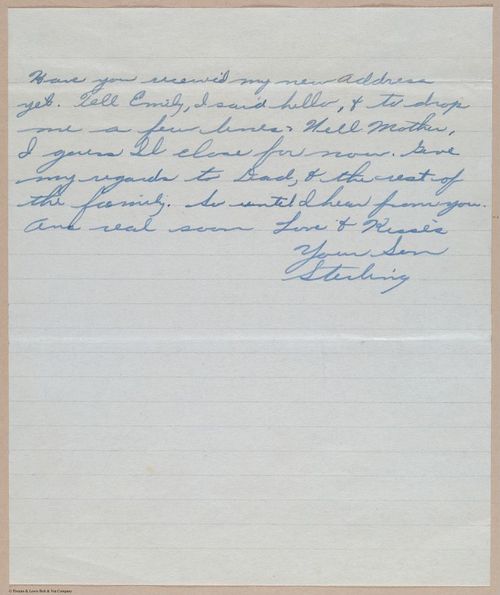 Have you receive'd my new address
yet. Tell Emily, I said hello, & to drop
me a few lines. Well Mother,
I guess I'll close for now. Give
my regards to Dad, & the rest of
the family. So until I hear from you.
And real soon Love & Kisses
Your Son
Sterling
© Heenan & Lewis Bed & Von Company